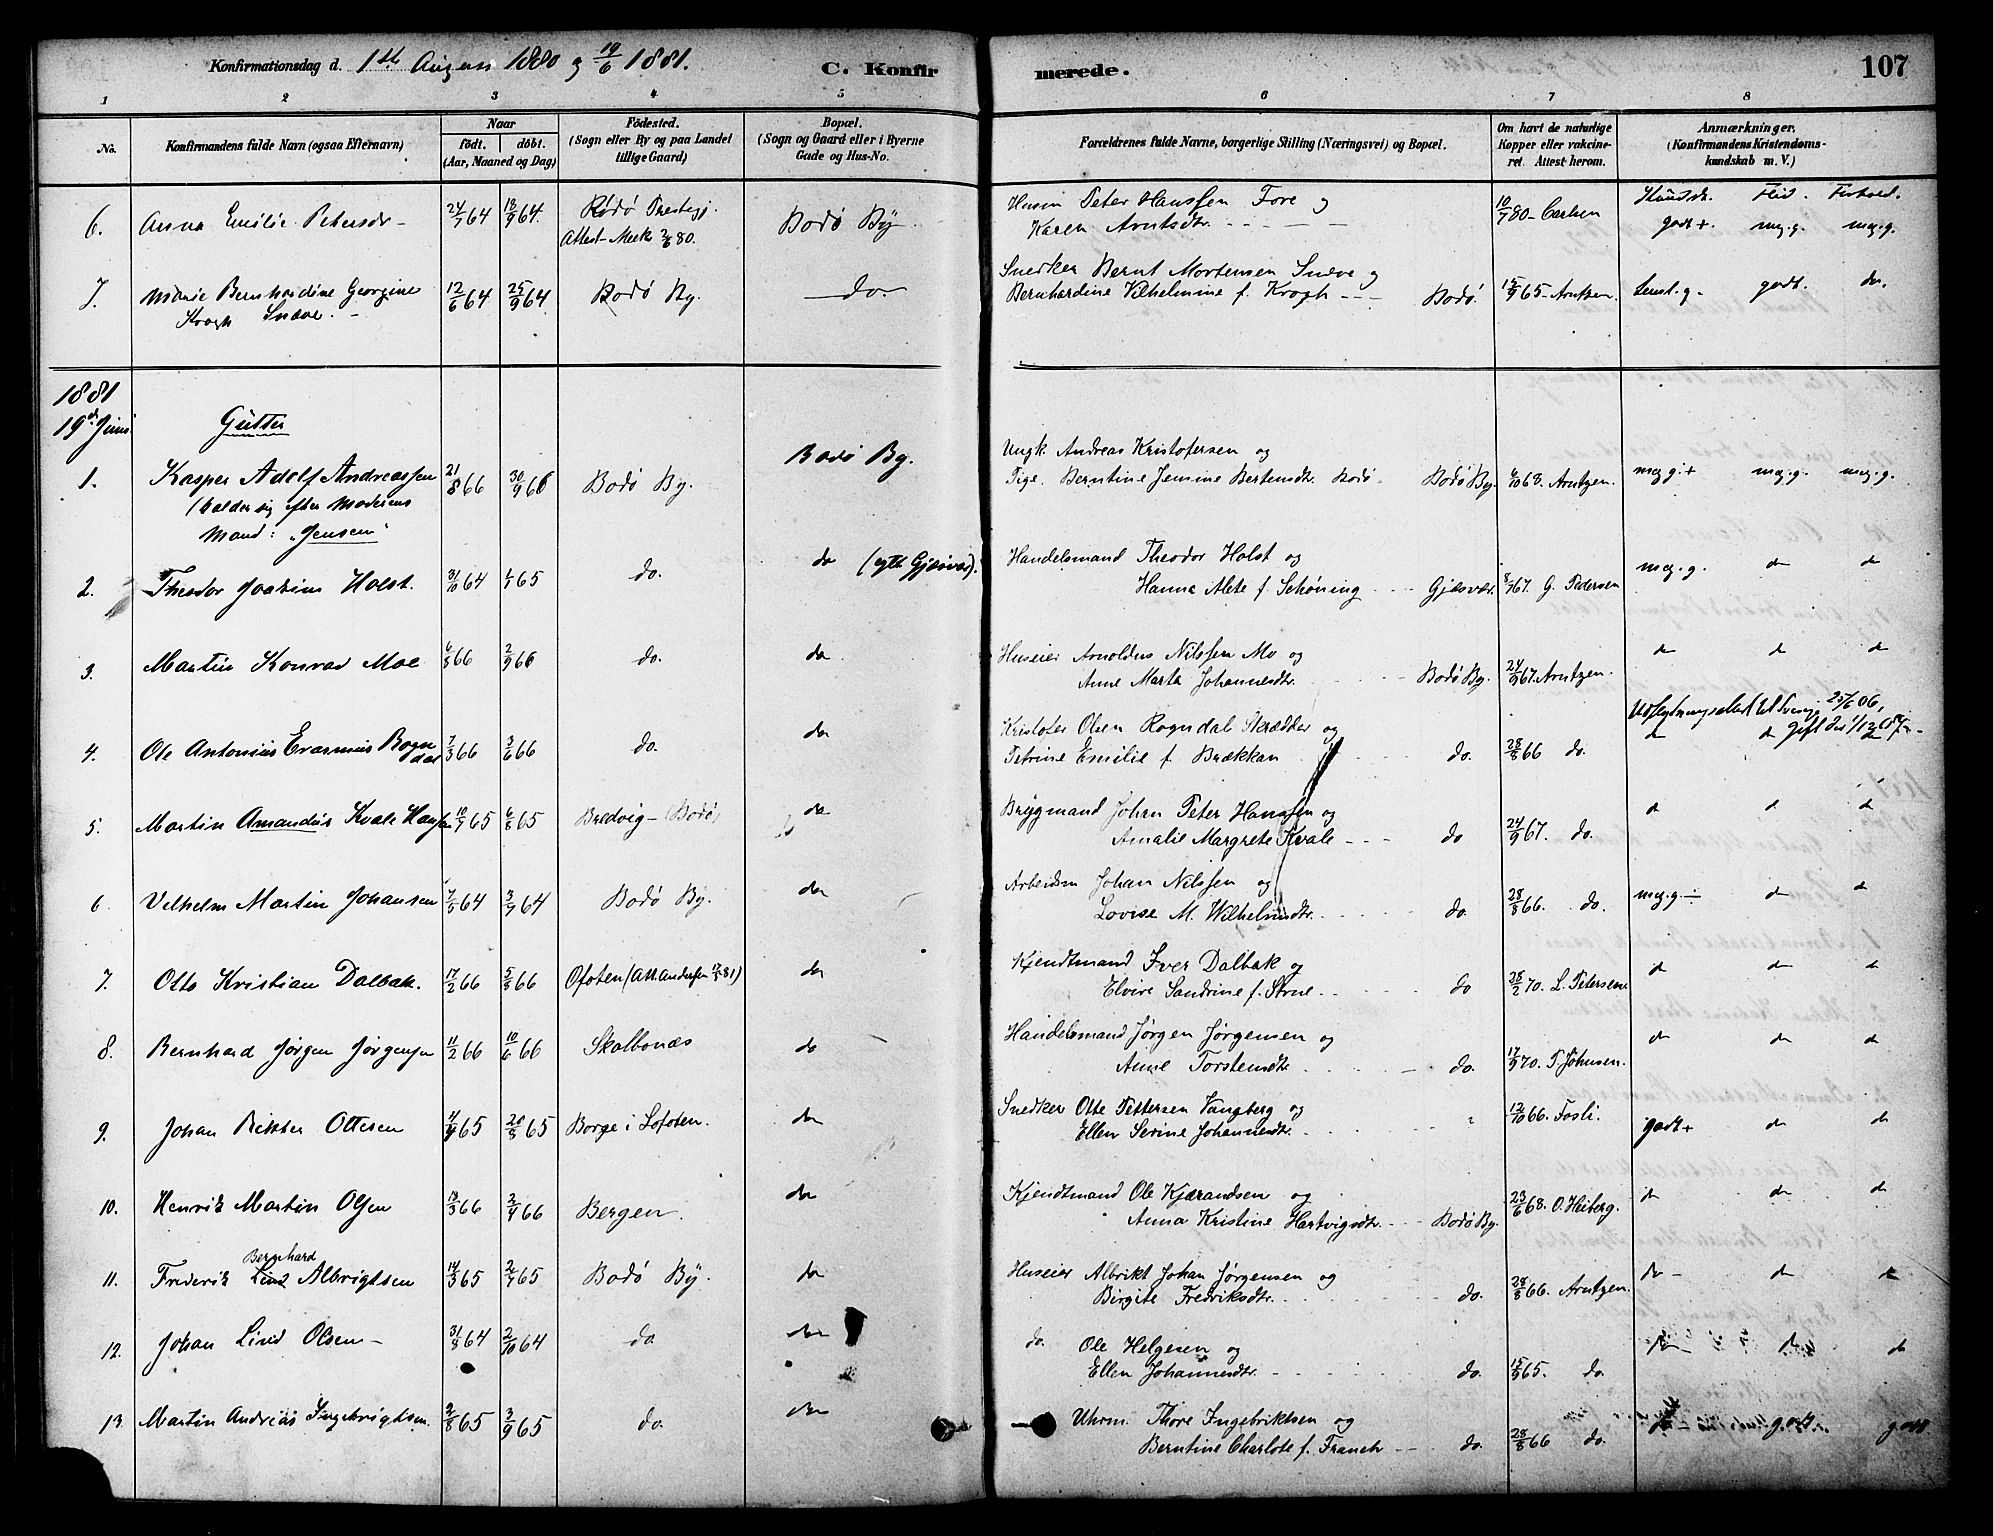 Konfirmationsdag d. 1ste August 1880 og 19/6 1881. C. Konfirmerede. 107
1 2 3 4 5 6 7 8
No. Konfirmandens fulde Navn (ogsaa Efternavn) Naar født. døbt. (Aar, Maaned og Dag) Fødested. (Sogn eller By og paa Landet tillige Gaard) Bopæl. (Sogn og Gaard eller i Byerne Gade og Hus-No. Forældrenes fulde Navne, borgerlige Stilling (Næringsvei) og Bopæl. Om havt de naturlige Kopper eller vakcineret. Attest herom. Anmærkninger. (Konfirmandens Kristendomskundskab m. V.)
Kundsk. Flid. Forhold.
6. Anna Emilie Petersdr 24/7 64 18/9 64. Rødø Prestegj. Attest Meek 2/6 80. Bodø By. Husm Peter Hanssen Fore og
Karen Arntsdtr. 10/7 80 - Carlsen godt + meg. g. meg. g.
7. Marie Bernhardine Georgine 12/6 64 25/9 64 Bodø By. do. Snedker Bernt Mortensen Snæve og
Krogh Snæve. Bernhardine Vilhelmine f. Krogh Bodø. 15/9 65 - Arntzen. Temt. g. godt. do.
1881
19de Juni. Gutter
1. Kasper Adolf Andreassen 21/8 66 30/9 66 Bodø By. Bodø By. Ungk. Andreas Kristofersen og
(kalder sig efter Moderens Pige. Berntine Jensine Bertensdtr. Bodø Bodø By. 6/10 68. Arntzen. meg. g. + meg. g. meg. g.
Mand: "Jensen"
2. Theodor Joakim Holst. 31/10 64 1/1 65 do. do (egtl. Gjæsvær). Handelsmand Theodor Holst og
Hanna Alete f. Schøning Gjæsvær. 8/9 67. G. Pedersen meg. g. do do
3. Martin Konrad Moe 6/8 66 2/9 66 do. do. Huseier Arnoldus Nilssen Mo og
Anne Marta Johannesdtr. Bodø By. 24/9 67. Arntzen. do do do
4. Ole Antonius Erasmus Rogndal 7/3 66 3/6 66 do. do Kristofer Olsen Rogndal Skrædder og
Petrine Emilie f. Brækkan do. 28/8 66 do. do do
5. Martin Amandus Kvale Hansen 10/7 65 6/8 65 Bredvig - (Bodø) do Brygmand Johan Peter Hanssen og
Amalie Margrete Kvale do 24/9 67. do. do do do
6. Vilhelm Martin Johansen 7/8 64 3/9 64 Bodø By. do Arbeidsm Johan Nilssen og
Lovise M. Wilhelmsdtr. do. 28/8 66. do. meg. g. ÷ do do
7. Otto Kristian Dalbak. 17/2 66 5/8 66 Ofoten (Att. Andersen 81) do Kjendtmand Iver Dalbak og
Elvire Sandrine f. Strue do 28/2 70. L. Petersen. do do do
8. Bernhard Jørgen Jørgensen 11/2 66 10/6 66 Skolbonæs do Handelsmand Jørgen Jørgensen og
Anne Torstensdtr do. 17/9 70. T. Johnsen. do do do
9. Johan Rikter Ottesen 4/4 65 20/8 65 Borge i Lofoten. do Snedker Otte Pettersen Vangberg og
Ellen Serine Johannesdtr. 12/10 66. Fosli. godt + do do
10. Henrik Martin Olsen 18/3 66 2/4 66 Bergen. do Kjendtmand Ole Kjærandsen og
Anna Kristine Hartvigsdtr. Bodø By. 23/6 68. O. Heiberg. do do do
11. Frederik Bernhard Lind Albrigtsen 14/3 65 2/7 65 Bodø By. do Huseier Albrikt Johan Jørgensen og
Birgite Fredriksdtr. do. 28/8 66. Arntzen. do - do do
12. Johan Lind Olsen 31/8 64 2/10 64 do do do. Ole Helgesen og
Ellen Johannesdtr. do. 15/9 65. do. do do
13. Martin Andreas Ingebrigtsen. 2/8 65 3/9 65 do. do Uhrm. Thore Ingebriktsen og
Berntine Charlote f. Franch do. 28/8 66 do. godt. godt